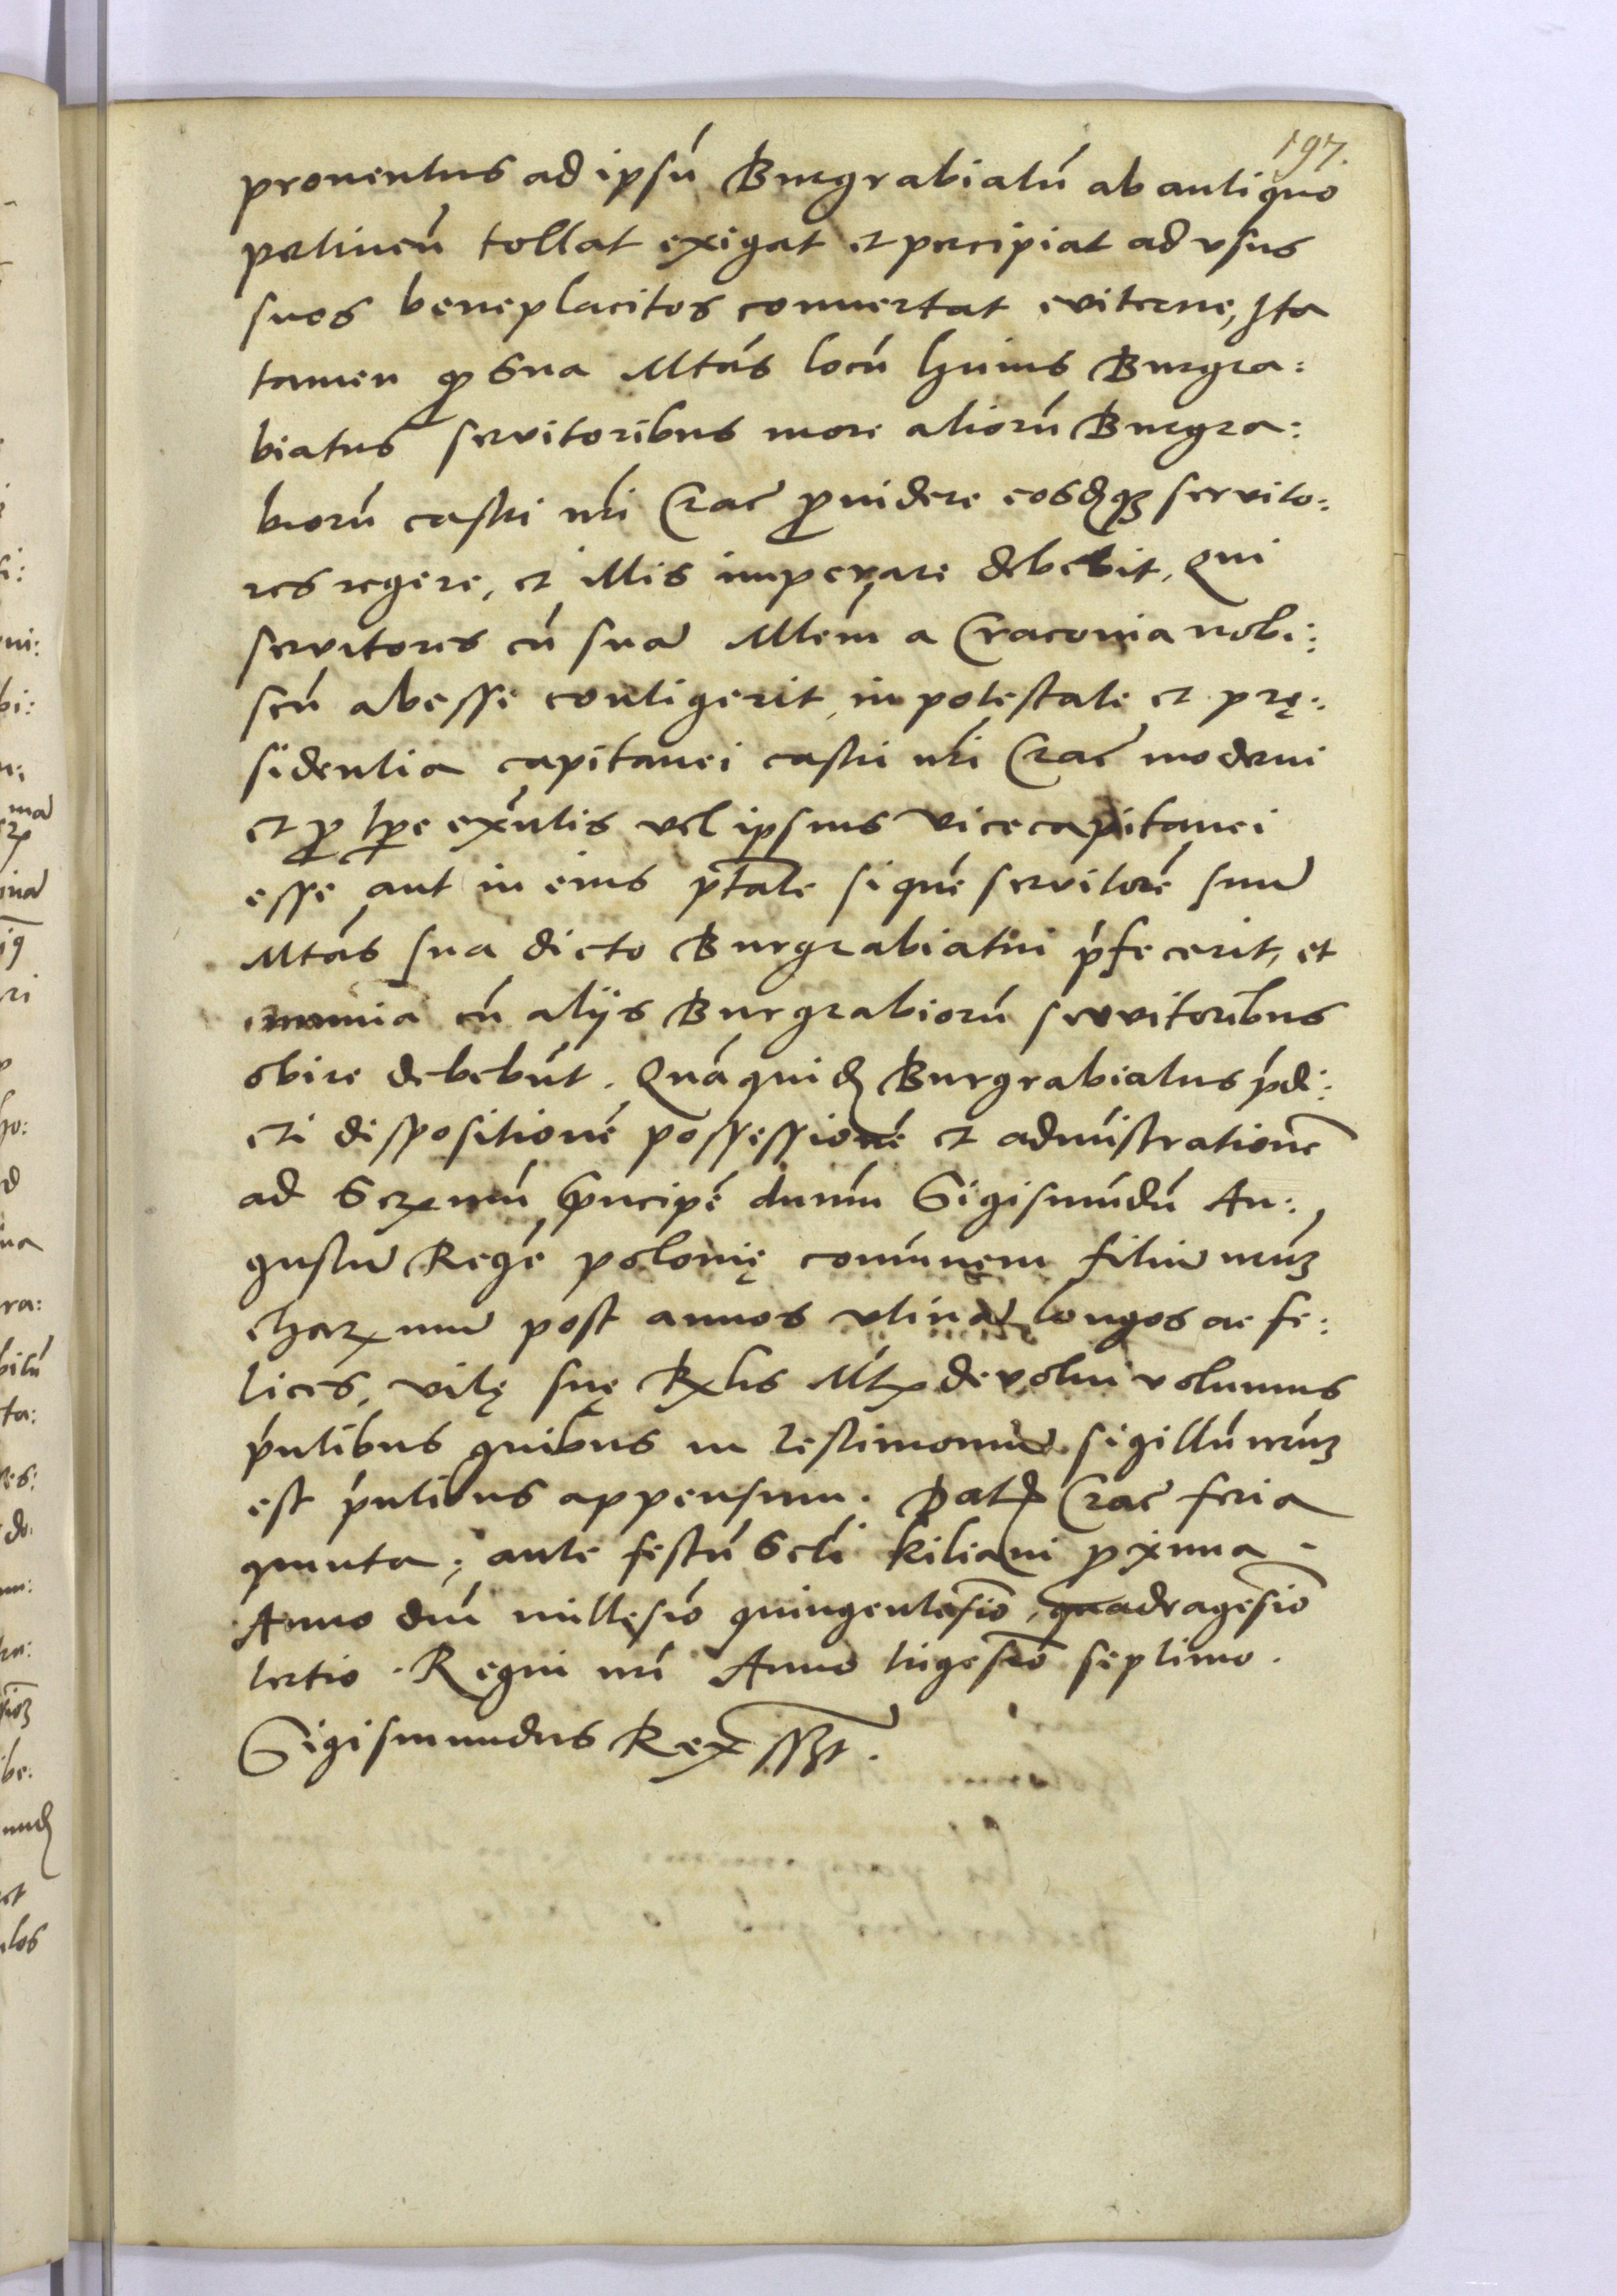 197.
prouentus ad ipsū Burgrabiatū ab antiquo
pertineñ tollat exigat et percipiat ad vsus
suos beneplacitos conuertat eviterne, Ita
tamen q Sua Mtās locū huius Burgra:
biatus servitoribus more aliorū Burgra:
biorū castri nri Crac prouidere eosdqz servito:
res regere, et illis imperare debebit, Qui
servitores cū suā Mtem a Cracouia nobi:
scū abesse contigerit, in potestate et prę:
sidentia capitanei castri nri Crac moderni
et p tpe exntis vel ipsius vicecapitanei
esse aut in eius ptate si quē servitorē suū
Mtās sua dicto Burgrabiatui pfecerit, et
munia cū alijs Burgrabiorū servitoribus
obire debebūt. Quā quid Burgrabiatus pdi:
cti dispositionē possessionē et admistrationē
ad Serxmū Principē dnūm Sigismūdū Au:
gustū Regē polonię comunem filiū nrūz
charxmū post annos vtinā longos ac fe:
lices, vitę suę Rxlis Mtx devolui volumus
pntibus quibus in testimoniū sigillū nrūz
est pntibus appensum. Dat Crac feria
quinta, ante festū Scti kiliani pxima.
Anno dni millesio quingentesio, quadragesio
tertio. Regni nri Anno trigesio septimo.
Sigismundus Rex sszt.